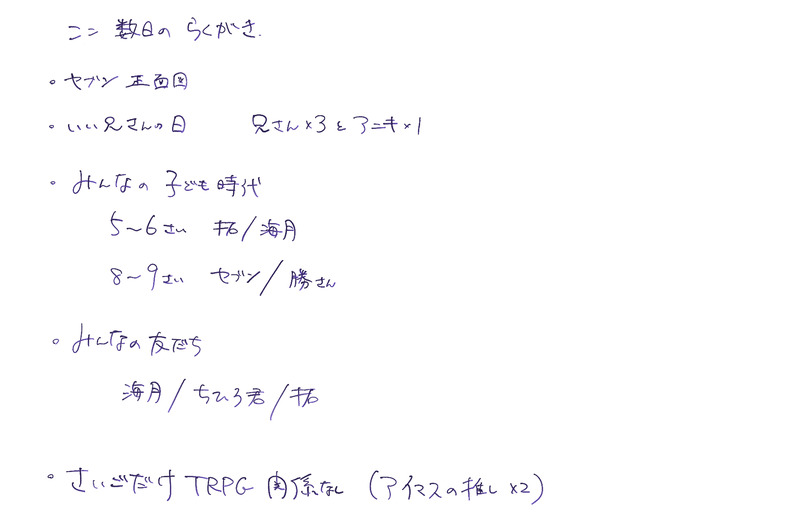 ここ数日のらくがき.
・セブン 正面図
・いい兄さんの日 兄さん×3とアニキ×1
・みんなの子ども時代
5～6さい 拓/海月
8～9さい セブン/勝さん
・みんなの友だち
海月/ちひろ君/拓
・さいごだけTRPG関係なし (アイマスの推し×2)